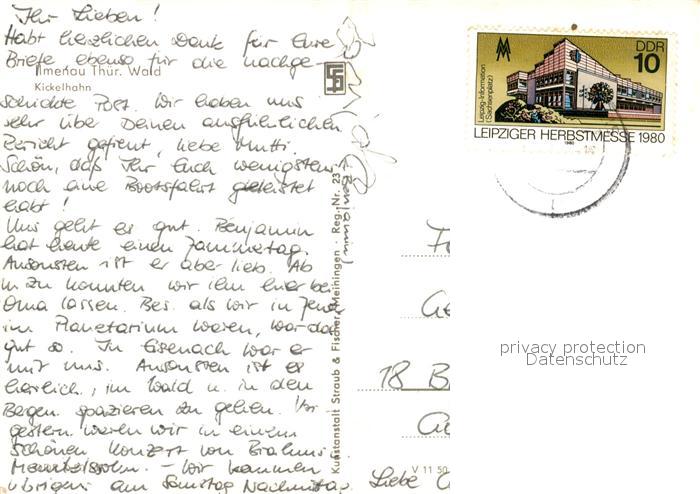 Ihr Lieben!
Habt herzlichen Dank für Eure
Briefe ebenso für die nachge-
Ilmenau Thür. Wald
Kickelhahn
schickte Post. Wir haben uns
sehr über Deinen ausführlichen
Bericht gefreut, liebe Mutti.
Schön, daß Ihr Euch wenigstens
noch eine Bootsfahrt geleistet
habt!
Uns geht es gut. Benjamin
hat heute einen Jammertag.
Ansonsten ist er aber lieb. Ab
u. zu konnten wir ihn hier bei
Oma lassen. Bes. als wir in Jena
im Planetarium waren, war das
gut so. In Eisenach war er
mit uns. Ansonsten ist es
herrlich, im Wald u. in den
Bergen spazieren zu gehen. Vor-
gestern waren wir in einem
schönen Konzert von Brahms
Mendelssohn. – Wir kommen
übrigens am Samstag Nachmittag.
Liebe
(Benjamin)
Kunstanstalt Straub & Fischer, Meiningen · Reg.-Nr. 23
V 11 50
DDR
10
Leipzig-Information
(Sachsenplatz)
LEIPZIGER HERBSTMESSE 1980
1980
18 B
privacy protection
Datenschutz